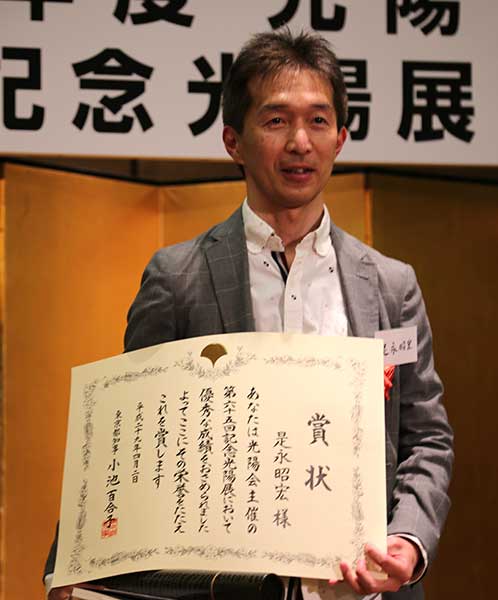 年度 光陽
記念光陽展
是永昭宏
賞状
是永昭宏 様
あなたは光陽会主催の
第六十五回記念光陽展において
優秀な成績をおさめられました
よってここにその栄誉をたたえ
これを賞します
平成二十九年四月二日
東京都知事 小池百合子